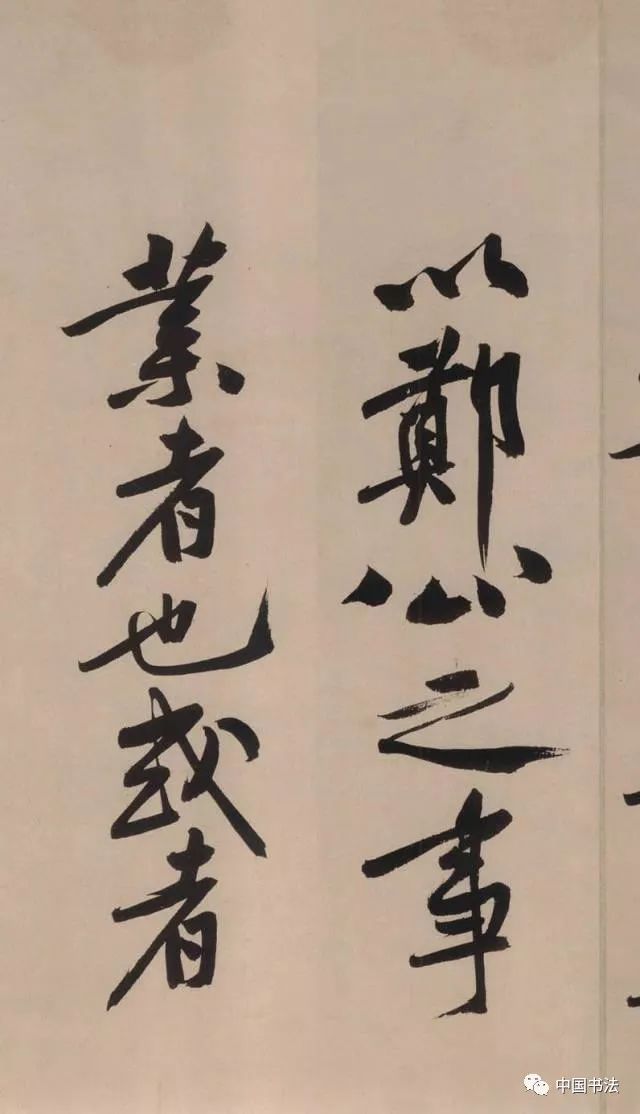 以鄭公之事
業者也或者
中国书法